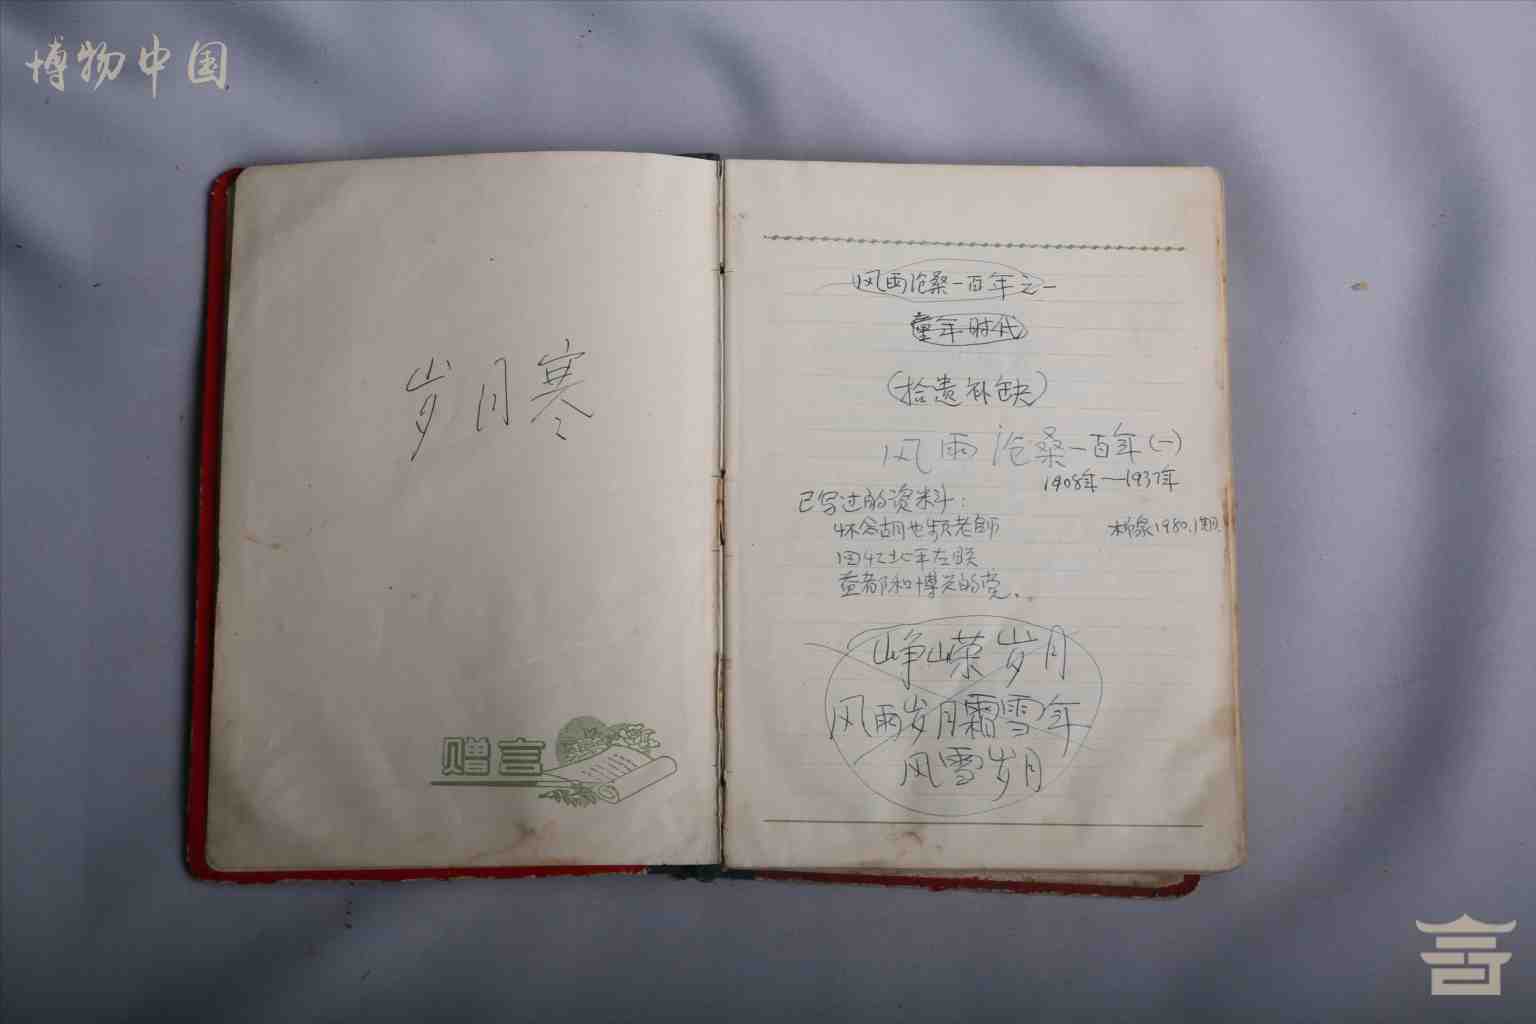 博物中国
岁月寒
赠言
风雨沧桑一百年之一
童年时代
(拾遗补缺)
风雨沧桑一百年(一)
1908年—1937年
已写过的资料:
怀念胡也频老师 柳泉1980.1期
回忆北平左联
益都和博兴的党.
峥嵘岁月
风雨岁月霜雪年
风雪岁月